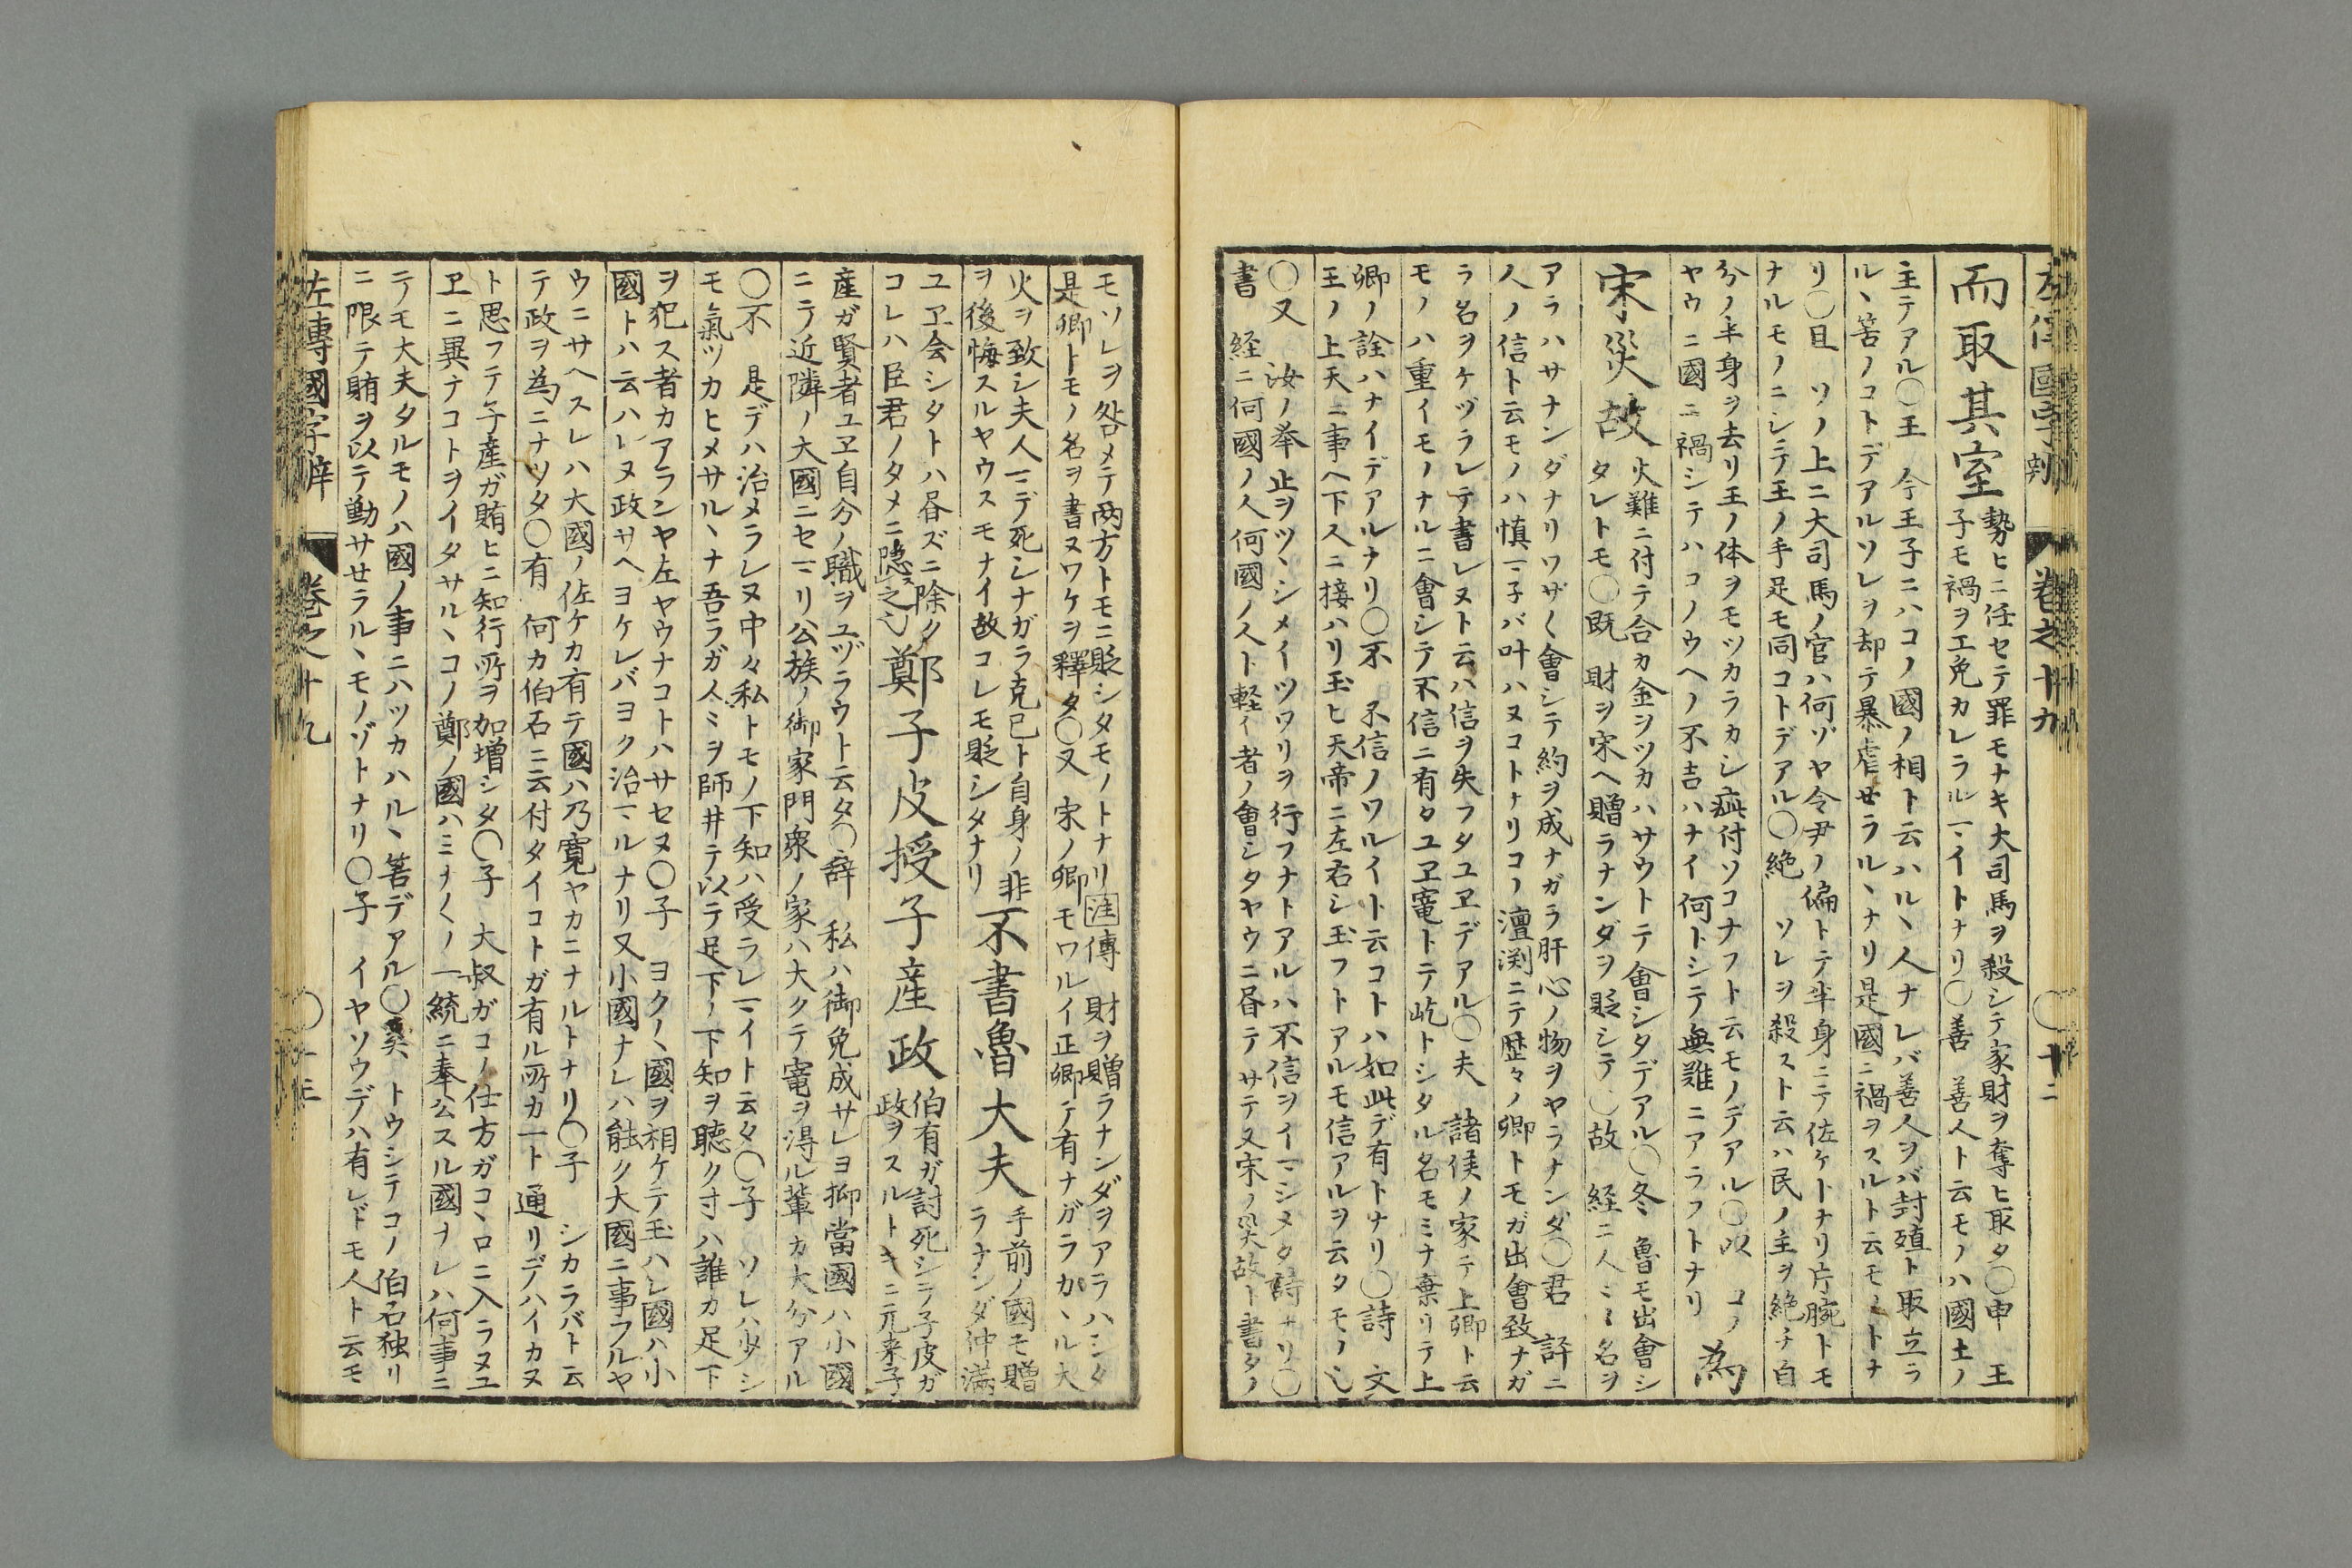 左傳國字辨 巻之十九 〇十二
而取其室
勢ヒニ任セテ罪モナキ大司馬ヲ殺シテ家財ヲ奪ヒ取タ〇申 王
子モ禍ヲエ免カレラルマイトナリ〇善 善人ト云モノハ國土ノ
主テアル〇王 今王子ニハコノ國ノ相ト云ハルヽ人ナレバ善人ヲバ封殖ト取立ラ
ルヽ筈ノコトデアルソレヲ却テ暴虐セラルヽナリ是國ニ禍ヲスルト云モノトナ
リ〇且 ソノ上ニ大司馬ノ官ハ何ソヤ令尹ノ偏トテ半身ニテ佐ケトナリ片腕トモ
ナルモノニシテ王ノ手足モ同コトデアル〇絶 ソレヲ殺スト云ハ民ノ主ヲ絶チ自
分ノ半身ヲ去リ王ノ体ヲモツカラカシ痛付ソコナフト云モノデアル〇以 コノ
ヤウニ國ニ禍シテハコノウヘノ不吉ハナイ何トシテ無難ニアラフトナリ
為
宋災故
火難ニ付テ合力金ヲツカハサウトテ會シタデアル〇冬 魯モ出會シ
タレトモ〇既 財ヲ宋ヘ贈ラナンダヲ貶シテ〇故 経ニ人ミミ名ヲ
アラハサナンダナリワザ〱會シテ約ヲ成ナガラ肝心ノ物ヲヤラナンダ〇君 評ニ
人ノ信ト云モノハ慎マ子バ叶ハヌコトナリコノ澶渕ニテ歴々ノ卿トモガ出會致ナガ
ラ名ヲケヅラレテ書レヌト云ハ信ヲ失フタユヱデアル〇夫 諸侯ノ家テ上卿ト云
モノハ重イモノナルニ會シテ不信ニ有タユヱ寵トテ屹トシタル名モミナ棄リテ上
卿ノ詮ハナイデアルナリ〇不 不信ノワルイト云コトハ如此デ有トナリ〇詩 文
王ノ上天ニ事ヘ下スニ接ハリ玉ヒ天帝ニ左右シ玉フトアルモ信アルヲ云タモノ也
〇又 汝ノ挙止ヲツヽシメイツワリヲ行フナトアルハ不信ヲイマシメタ詩ナリ〇
書 経ニ何國ノ人何國ノ人ト軽イ者ノ會シタヤウニ昏テサテ又宋ノ災故ト書タノ
モソレヲ咎メテ両方トモニ貶シタモノトナリ注傳 財ヲ贈ラナンダヲアラハシタ
是卿トモノ名ヲ書ヌワケヲ釋タ〇又 宋ノ卿モワルイ正卿テ有ナガラカヽル大
火ヲ致シ夫人マデ死シナガラ克已ト自身ノ非
ヲ後悔スルヤウスモナイ故コレモ貶シタナリ
不書魯大夫
手前ノ國モ贈
ラナンダ沖満
ユヱ会シタトハ昏ズニ除ク
コレハ臣君ノタメニ隠ス之也
鄭子皮授子産政
伯有ガ討死シテ子皮ガ
政ヲスルトキニ元来子
産ガ賢者ユヱ自分ノ職ヲユヅラウト云タ〇辞 私ハ御免成サレヨ抑當國ハ小國
ニテ近隣ノ大國ニセマリ公族ノ御家門衆ノ家ハ大クテ寵ヲ得ル輩カ大分アル
〇不 是デハ治メラレヌ中々私トモノ下知ハ受ラレマイト云タ〇子 ソレハ少シ
モ氣ヅカヒメサルヽナ吾ラガ人ミヲ師井テ以テ足下ノ下知ヲ聴ク寸ハ誰カ足下
ヲ犯ス者カアランヤ左ヤウナコトハサセヌ〇子 ヨク〱國ヲ相ケテ玉ハレ國ハ小
國トハ云ハレヌ政サヘヨケレバヨク治マルナリ又小國ナレハ能ク大國ニ事フルヤ
ウニサヘスレハ大國ノ佐ケカ有テ國ハ乃寛ヤカニナルトナリ〇子 シカラバト云
テ政ヲ為ニナツタ〇有 何カ伯石ニ云付タイコトガ有ル所カ一ト通リデハイカヌ
ト思フテ子産ガ賄ヒニ知行所ヲ加増シタ〇子 大叔ガコノ仕方ガコヽロニ入ラヌユ
ヱニ異ナコトヲイタサルヽコノ鄭ノ國ハミナ〱ノ一統ニ奉公スル國ナレハ何事ニ
テモ大夫タルモノハ國ノ事ニハツカハルヽ筈デアル〇奚 トウシテコノ伯石独リ
ニ限テ賄ヲ以テ勤サセラルヽモノゾトナリ〇子 イヤソウデハ有レドモ人ト云モ
左傳國字辨 巻之十九